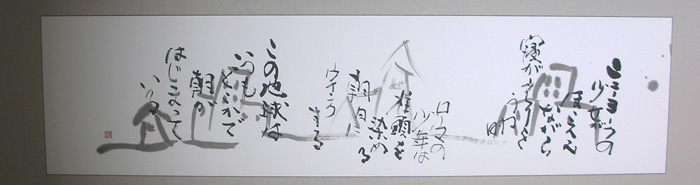 ニューヨークの
少女が
ほほえみ
ながら
寝がえりを
うつ時
ローマの
少年は
柱頭を
染める
朝日に
ウインク
する
この地球は
いつも
どこかで
朝が
はじまって
いる